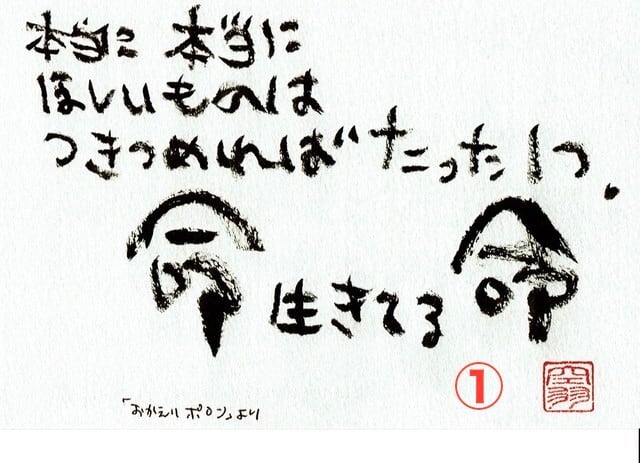 本当に 本当に
ほしいものは
つきつめれば たった1つ。
命 生きてる 命
①
「おかえり ポロン」より